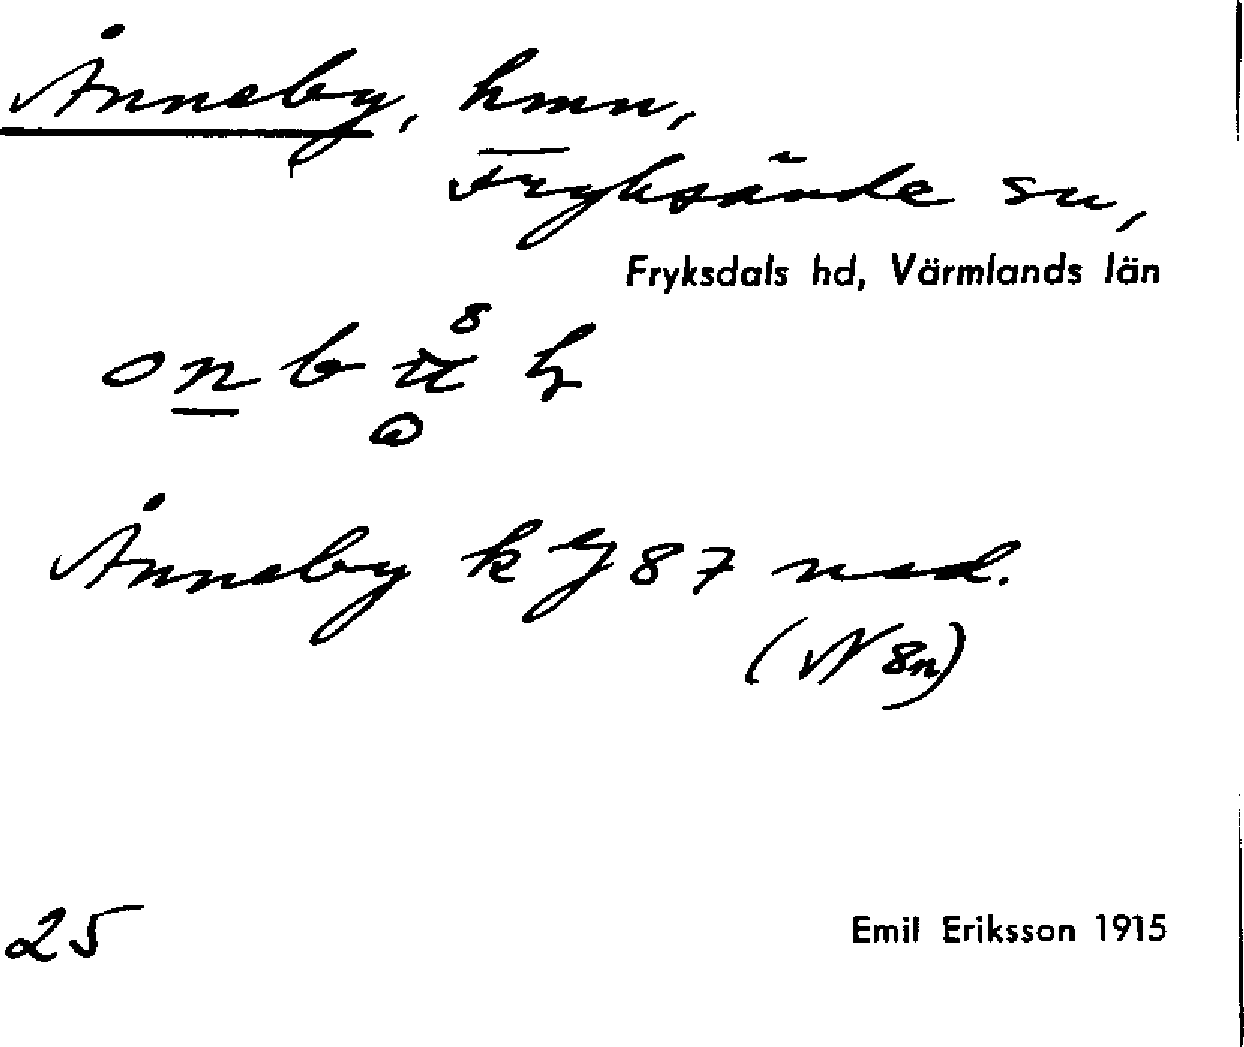 Ånneby, hmn,
Fryksände sn,
Fryksdals hd, Värmlands län
Ånneby k 87 ned.
(N 8n)
25
Emil Eriksson 1915